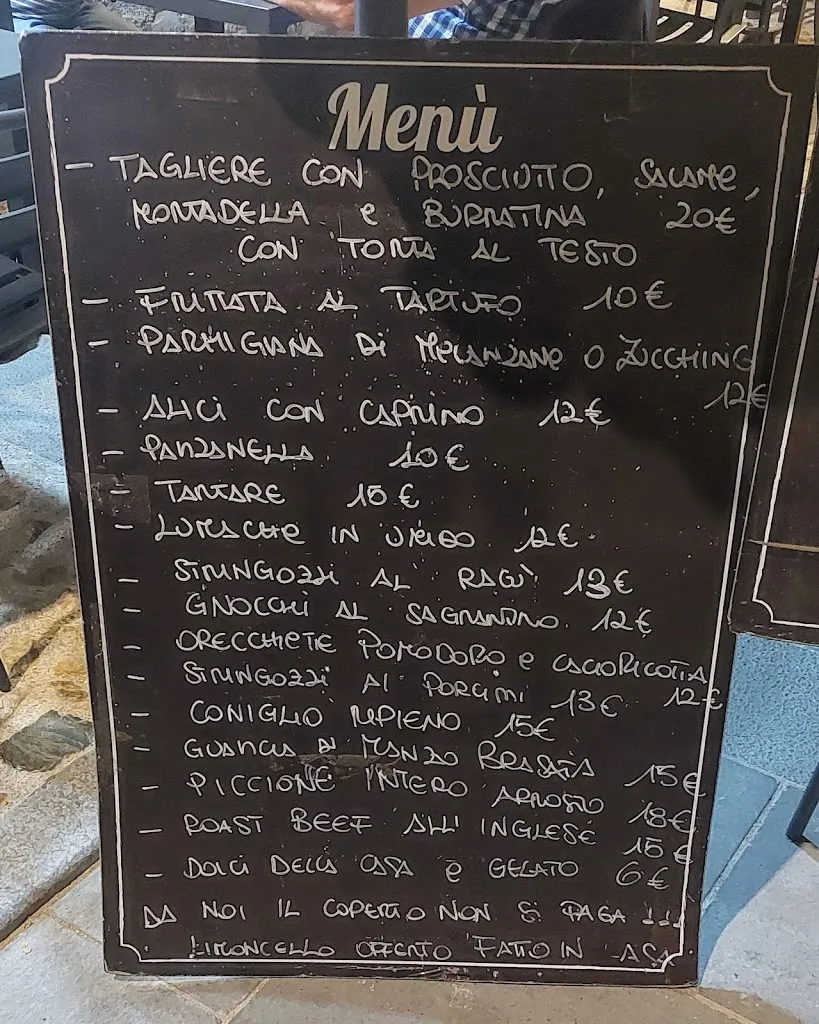 Menù
- TAGLIERE CON PROSCIUTTO, SALAME,
MORTADELLA e BURRATINA 20€
CON TORTA AL TESTO
- FRITTATA AL TARTUFO 10€
- PARMIGIANA Di MELANZANE O ZUCCHINE
12€
- ALICI CON CAPRINO 12€
- PANZANELLA 10€
- TARTARE 15€
- LUMACHE IN UMIDO 12€
- STRINGOZZI AL RAGÙ 13€
- GNOCCHI AL SAGRANTINO 12€
- ORECCHIETTE POMODORO e CACIORICOTTA
12€
- STRINGOZZI AI PORCINI 13€
- CONIGLIO RIPIENO 15€
- GUANCIA DI MANZO BRASATA 15€
- PICCIONE INTERO ARROSTO 18€
- ROAST BEEF ALL'INGLESE 15€
- DOLCI DELLA CASA e GELATO 6€
DA NOI IL COPERTO NON SI PAGA !!!
LIMONCELLO OFFERTO FATTO IN CASA